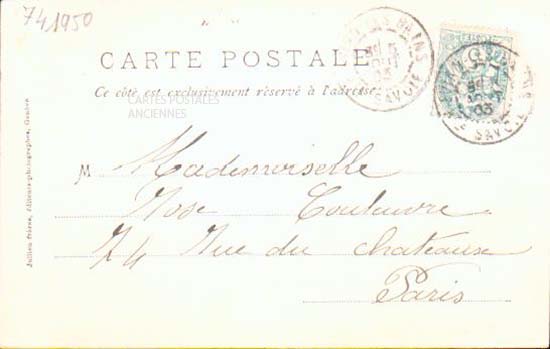 741950
CARTE POSTALE
Ce côté est exclusivement réservé à l'adresse.
CARTES POSTALES
ANCIENNES
M
Mademoiselle
Rose Couleuvre
74 Rue du chateau
Paris
Jullien frères, éditeurs-photographes, Genève
BAINS
SAVOIE
03
SAVOIE